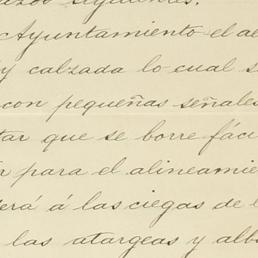 siguientes.
Ayuntamiento el
y calzada lo cual s
con pequeñas señales
tar que se borre fác
para el alineamie
erá á las ciegas de l
las atargeas y alb